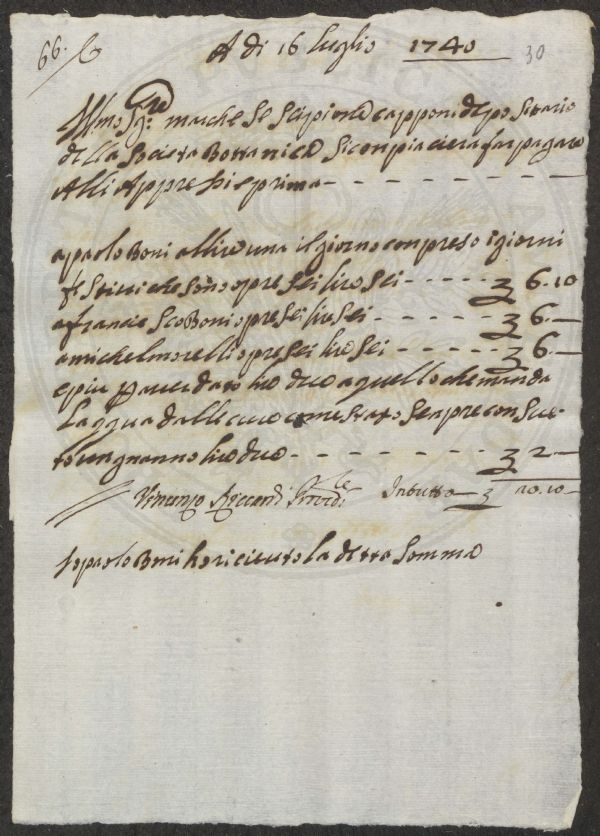 66. 
A di 16 luglio 1740
30
Ill.mo Sig.re marchese Scipione capponi depositario
della Societa Bottanica Si conpiacera far pagare
Alli Appresi e prima
a paolo Boni a lire una il giorno conpreso i giorni
festivi che sono opre sei lire sei 6.10
a francesco Boni opre sei lire sei 6
a michel morelli opre sei lire sei 6
e piu p aver dato lire due a quello che manda
L'aqqua dalle come stato senpre consue
to ongnanno lire due 2
Vincenzo In tutto 20.10
Io paolo Boni ho riceuto la detta Somma